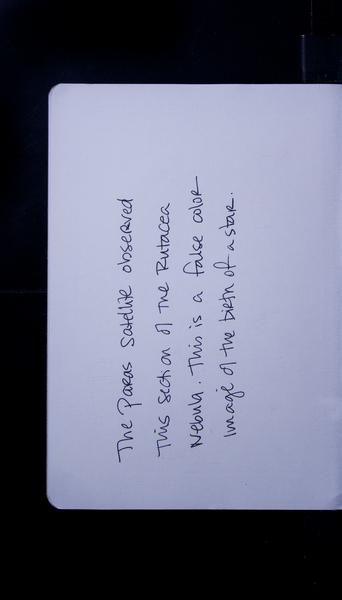 The Paras Satellite observed
This section of the Rutacea
Nebula. This is a false color
image of the birth of a star.